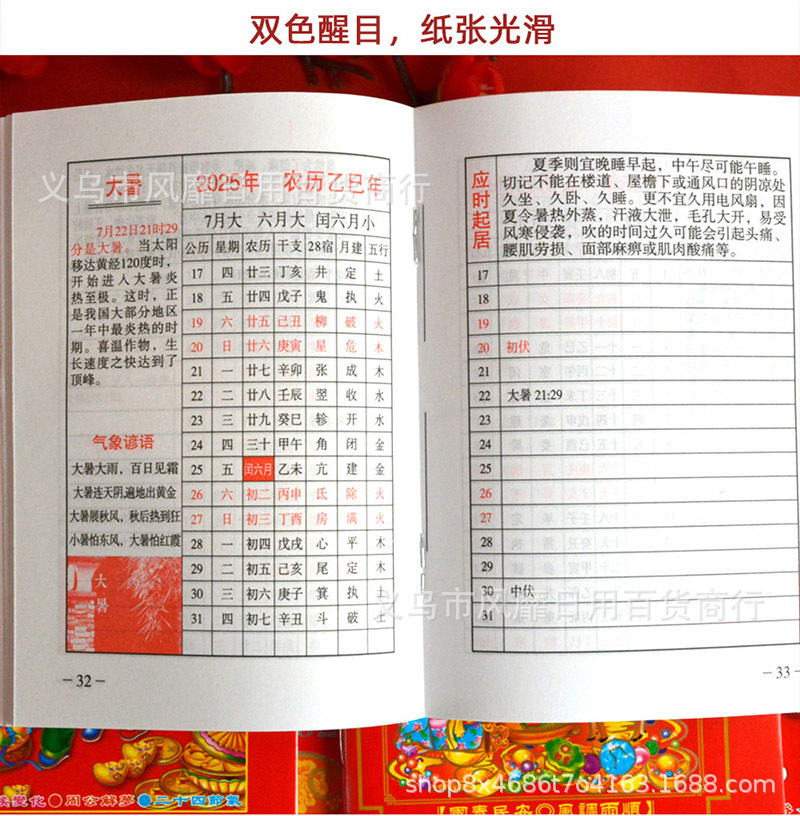 双色醒目，纸张光滑
大暑
2025年 农历乙巳年
7月22日21时29
分是大暑。当太阳
移达黄经120度时，
开始进入大暑炎
热至极。这时，正
是我国大部分地区
一年中最炎热的时
期。喜温作物，生
长速度之快达到了
顶峰。
气象谚语
大暑大雨，百日见霜
大暑连天阴，遍地出黄金
大暑展秋风，秋后热到狂
小暑怕东风，大暑怕红霞
大暑
7月大 六月大 闰六月小
公历 星期 农历 干支 28宿 月建 五行
17 四 廿三 丁亥 井 定 土
18 五 廿四 戊子 鬼 执 火
19 六 廿五 己丑 柳 破 火
20 日 廿六 庚寅 星 危 木
21 一 廿七 辛卯 张 成 木
22 二 廿八 壬辰 翌 收 水
23 三 廿九 癸巳 轸 开 水
24 四 三十 甲午 角 闭 金
25 五 闰六月 乙未 亢 建 金
26 六 初二 丙申 氐 除 火
27 日 初三 丁酉 房 满 火
28 一 初四 戊戌 心 平 木
29 二 初五 己亥 尾 定 木
30 三 初六 庚子 箕 执 土
31 四 初七 辛丑 斗 破 土
－32－
应时起居
夏季则宜晚睡早起，中午尽可能午睡。
切记不能在楼道、屋檐下或通风口的阴凉处
久坐、久卧、久睡。更不宜久用电风扇，因
夏令暑热外蒸，汗液大泄，毛孔大开，易受
风寒侵袭，吹的时间过久可能会引起头痛、
腰肌劳损、面部麻痹或肌肉酸痛等。
17
18
19
20 初伏
21
22 大暑 21:29
23
24
25
26
27
28
29
30 中伏
31
－33－
义乌市风靡日用百货商行
义乌市风靡日用百货商行
變化◎周公解夢◎二十四節氣
【國泰民安◎風調雨順】
shop8x4686t7o4163.1688.com